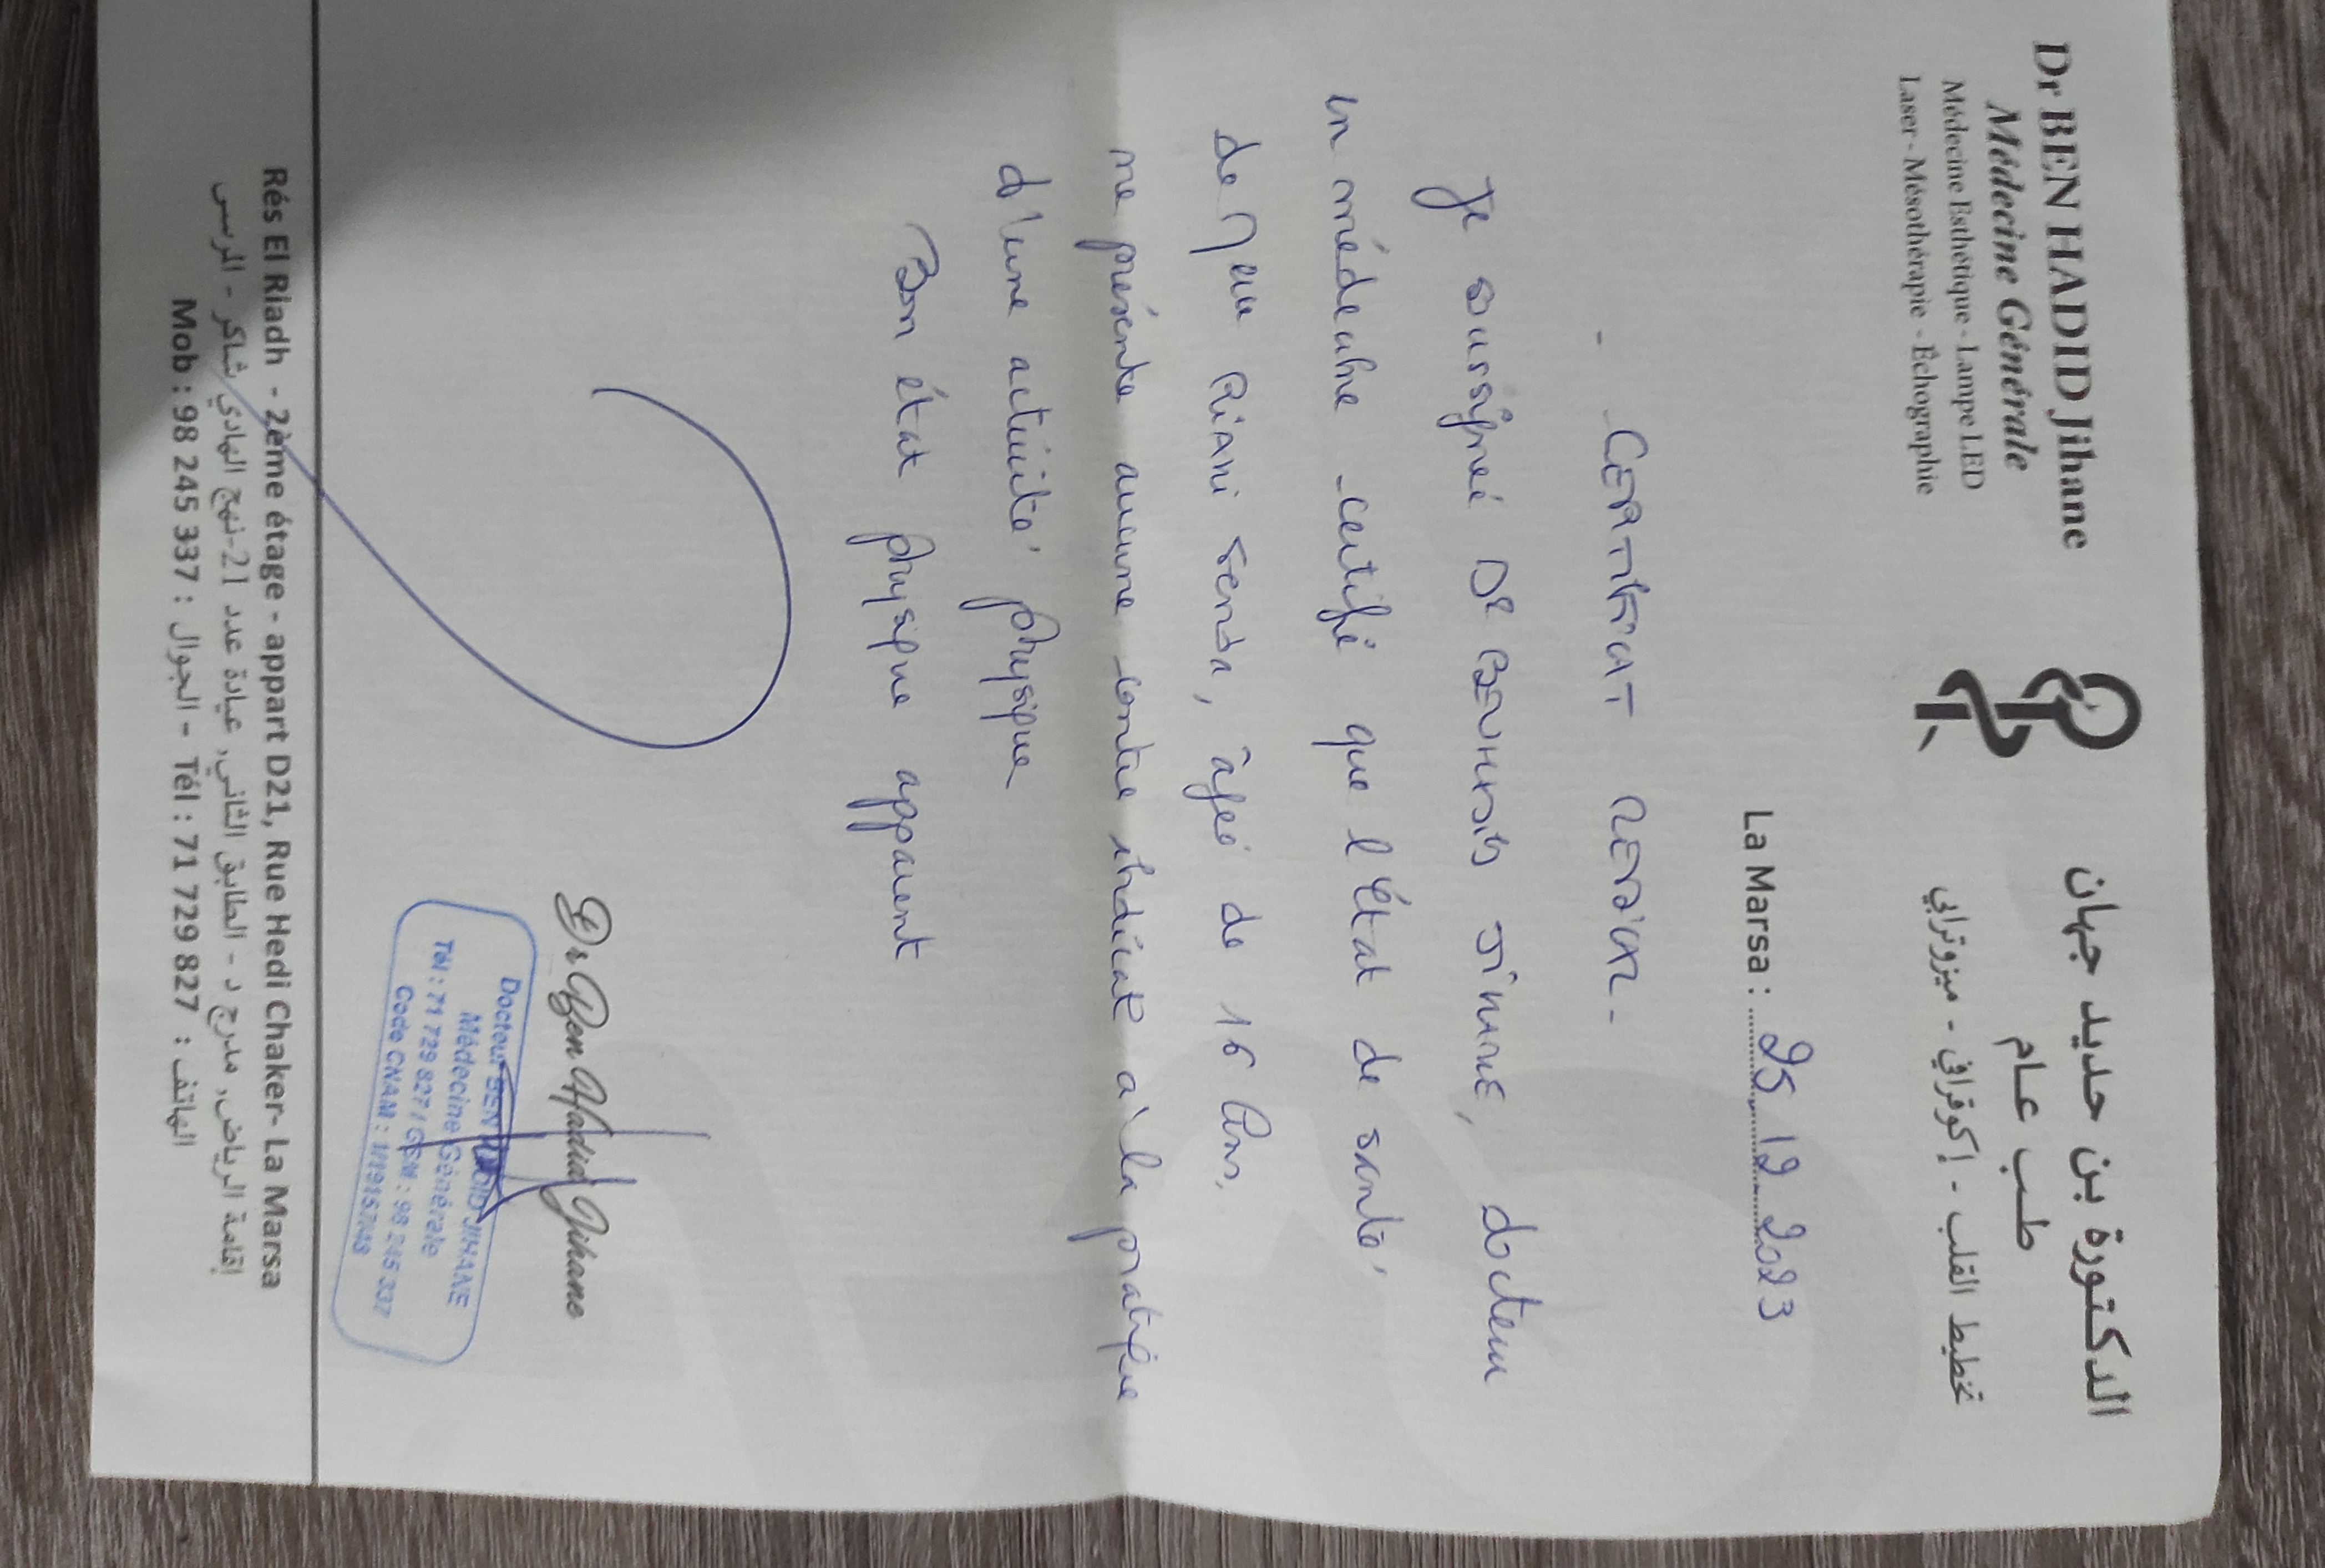 Dr BEN HADID Jihane
Médecine Générale
Médecine Esthétique - Lampe LED
Laser - Mésothérapie - Échographie
الدكتورة بن حديد جيهان
طب عام
تخطيط القلب - إكوقرافي - ميزوترابي
La Marsa : 25 12 2023
- CERTIFICAT MEDICAL -
Je soussigné Dr, docteur
en médecine certifie que l'État de santé
de Melle Riahi Senda, âgée de 16 Ans,
ne présente aucune contre indicat à la pratique
d'une activité physique
Bon état physique apparent
Dr Ben Hadid Jihane
Docteur BEN HADID JIHANE
Médecine Générale
Tél : 71 729 827 / GSM : 98 245 337
Code CNAM :
Rés El Riadh - 2ème étage - appart D21, Rue Hedi Chaker- La Marsa
إقامة الرياض, مدرج د - الطابق الثاني, عيادة عدد 21-نهج الهادي شاكر - المرسى
Mob : 98 245 337 : الجوال - Tél : 71 729 827 : الهاتف